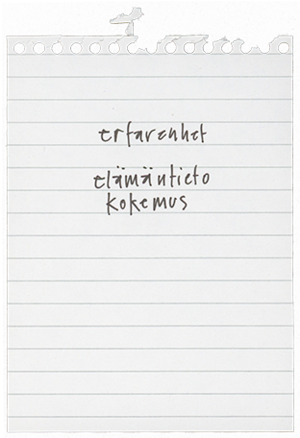 erfarenhet
elämäntieto
kokemus